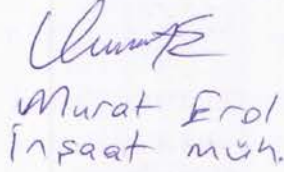 Murat Erol
İnşaat müh.